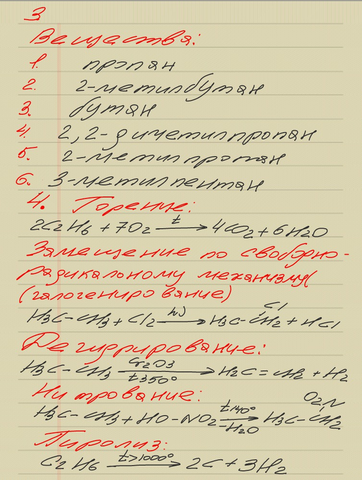 3
Вещества:
1. пропан
2. 2-метилбутан
3. бутан
4. 2,2-диметилпропан
5. 2-метилпропан
6. 3-метилпентан
4. Горение:
2C₂H₆ + 7O₂ —t→ 4CO₂ + 6H₂O
Замещение по свободно-
радикальному механизму
(галогенирование)
Cl
H₃C-CH₃ + Cl₂ —hν→ H₃C-CH₂ + HCl
Дегидрирование:
H₃C-CH₃ —Cr₂O₃ t>350°→ H₂C=CH₂ + H₂
Нитрование:
O₂N
H₃C-CH₃ + HO-NO₂ —t140° -H₂O→ H₃C-CH₂
Пиролиз:
C₂H₆ —t>1000°→ 2C + 3H₂